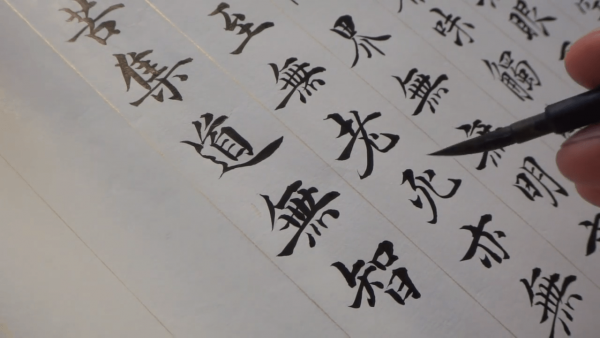 眼
味觸
界無無明
至無老死亦無
苦集道無智